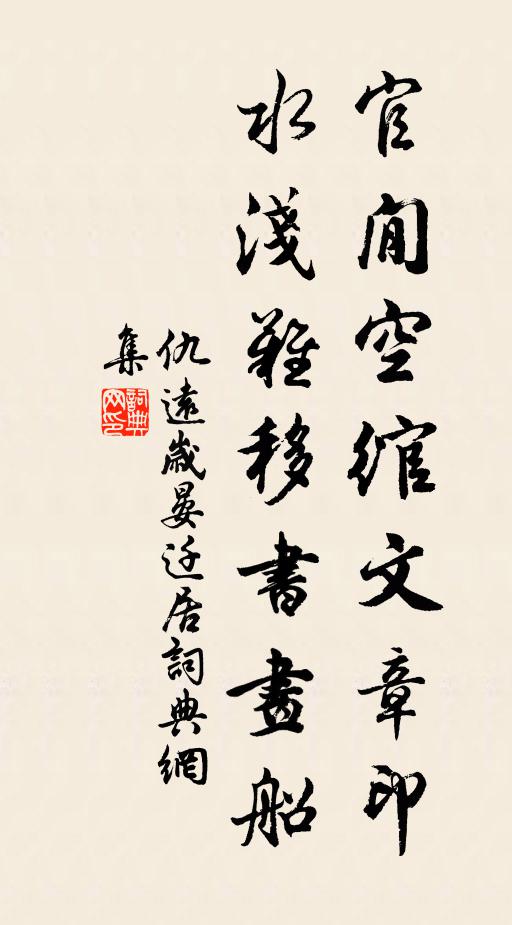 官閒空綰文章印
水淺難移書畫船
仇遠歲晏迁居詞典網
集
詞典
网印